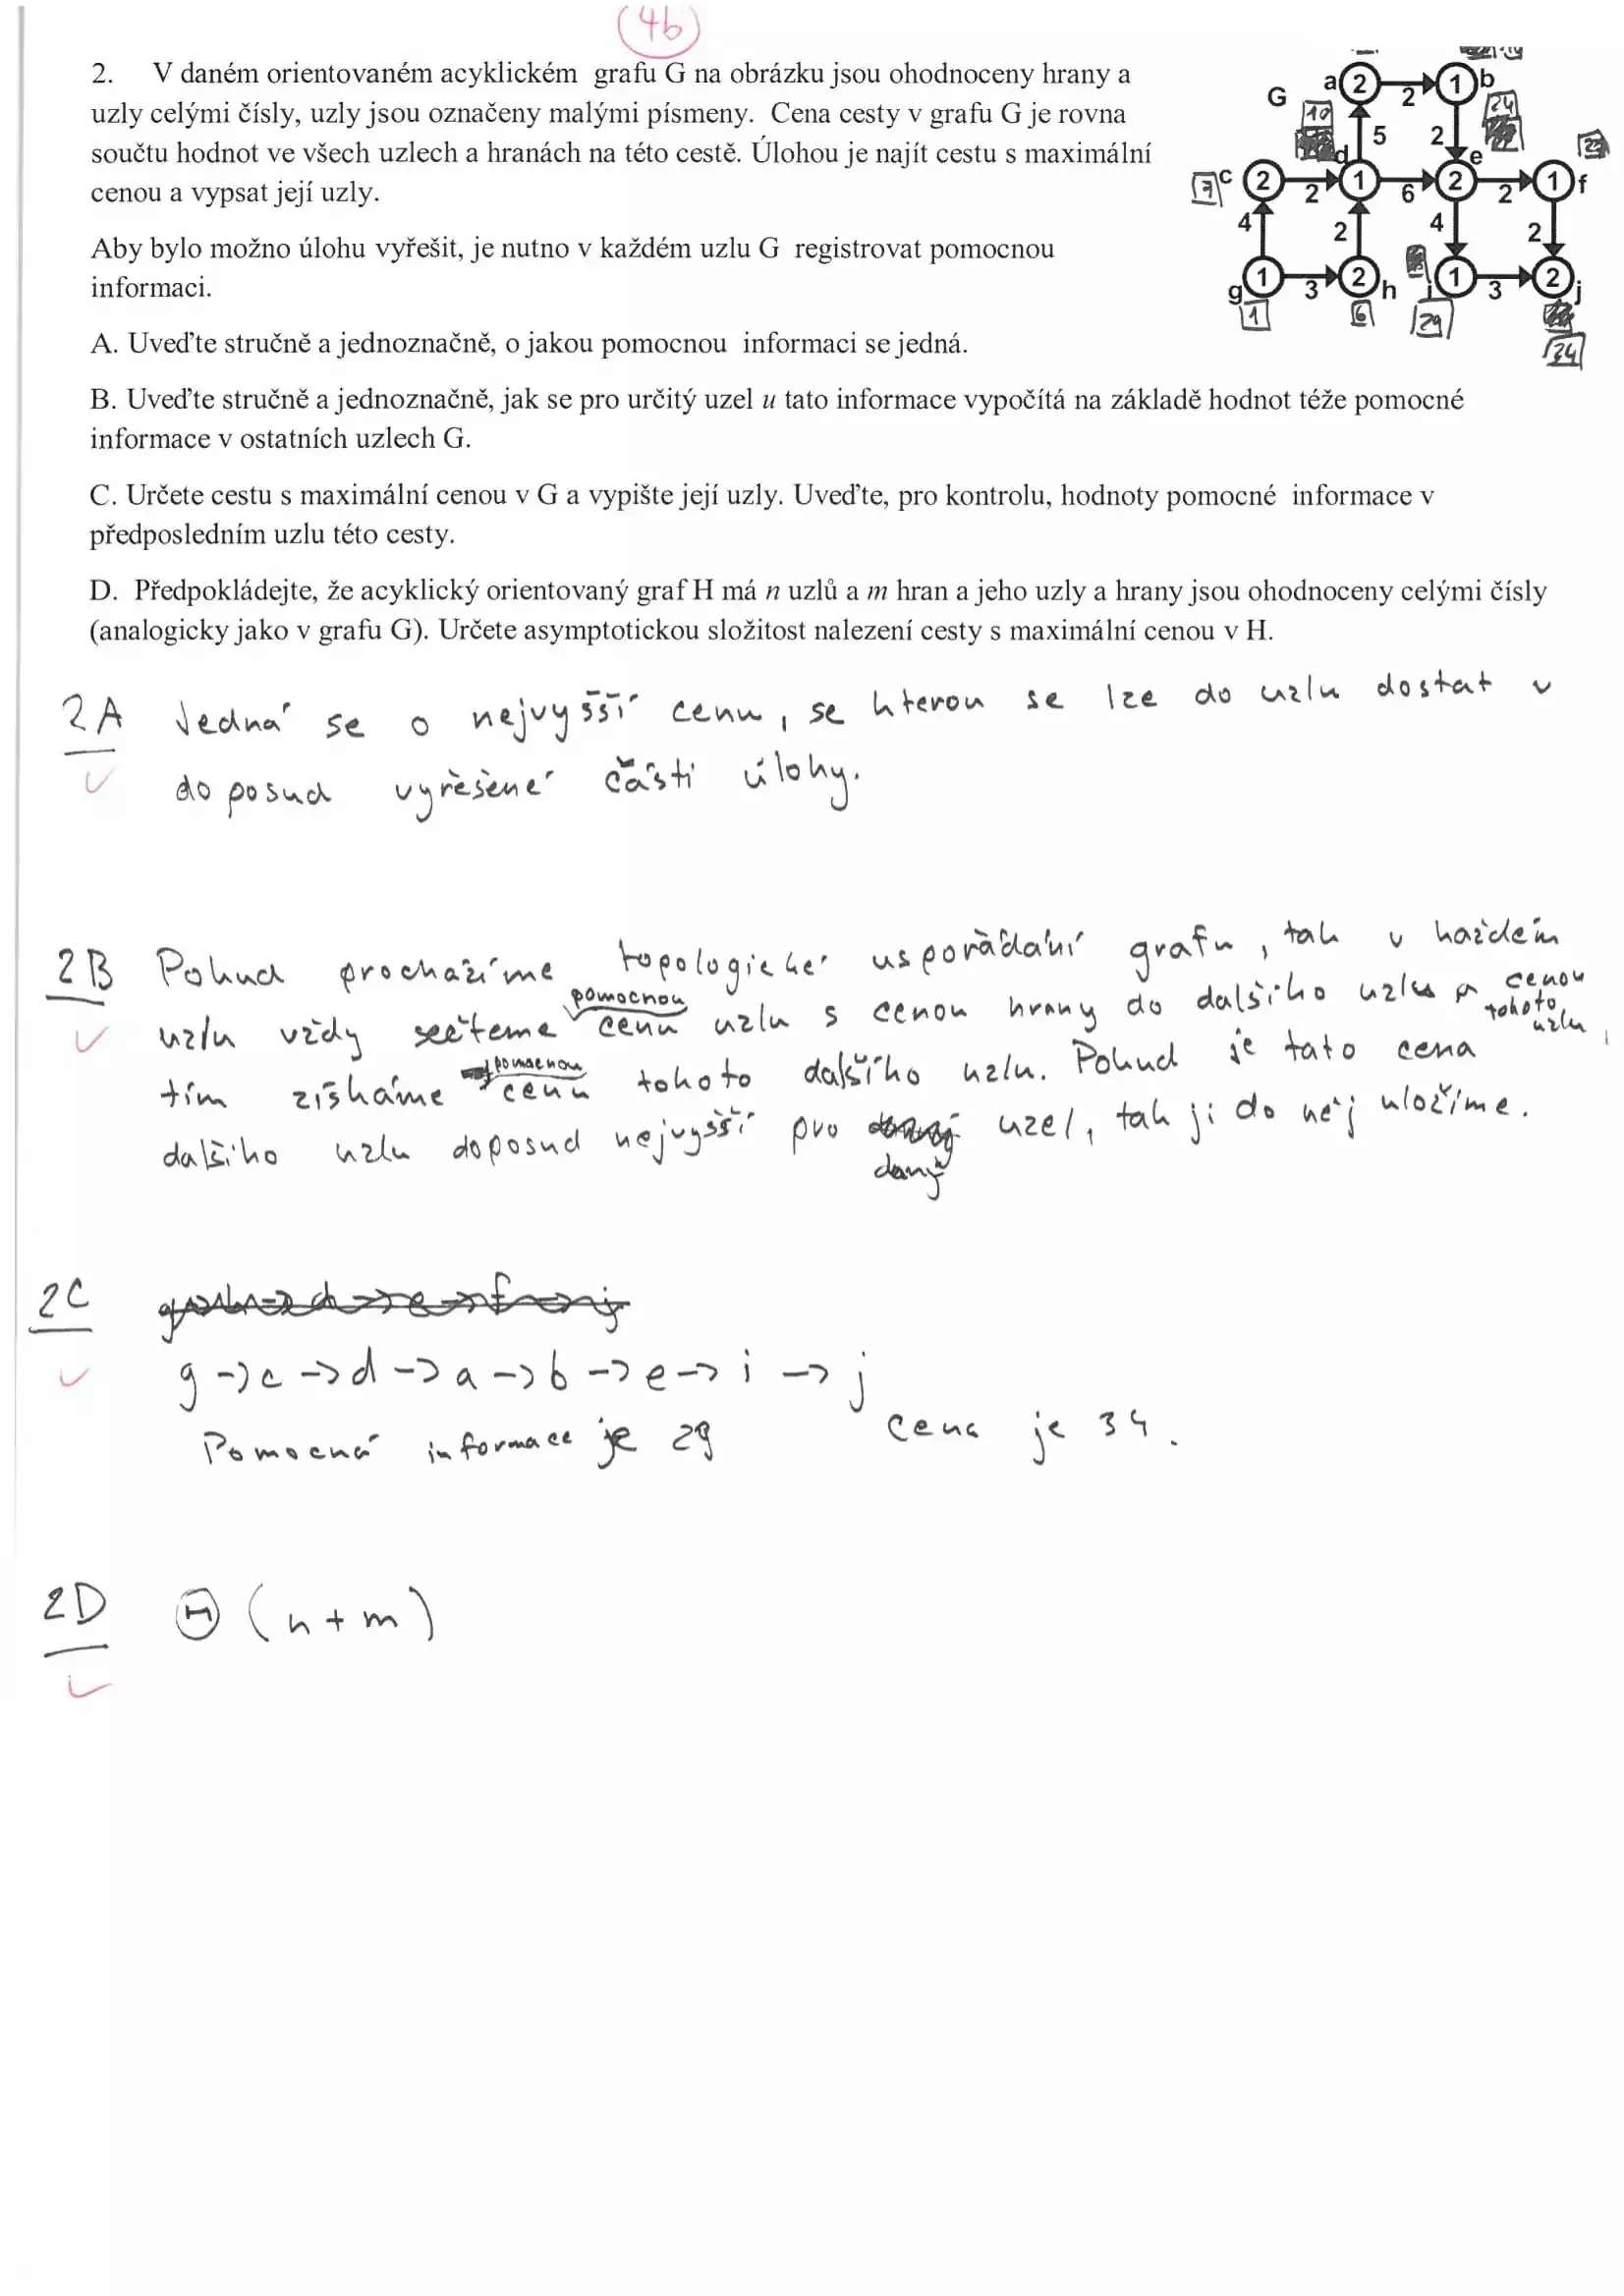 4b
2. V daném orientovaném acyklickém grafu G na obrázku jsou ohodnoceny hrany a
uzly celými čísly, uzly jsou označeny malými písmeny. Cena cesty v grafu G je rovna
součtu hodnot ve všech uzlech a hranách na této cestě. Úlohou je najít cestu s maximální
cenou a vypsat její uzly.
Aby bylo možno úlohu vyřešit, je nutno v každém uzlu G registrovat pomocnou
informaci.
G a 2 2 1 b
10 5 2 24
d e
7 c 2 2 1 6 2 2 1 f
4 2 4 2
g 1 3 2 h i 1 3 2 j
1 6 29
34
A. Uveďte stručně a jednoznačně, o jakou pomocnou informaci se jedná.
B. Uveďte stručně a jednoznačně, jak se pro určitý uzel u tato informace vypočítá na základě hodnot téže pomocné
informace v ostatních uzlech G.
C. Určete cestu s maximální cenou v G a vypište její uzly. Uveďte, pro kontrolu, hodnoty pomocné informace v
předposledním uzlu této cesty.
D. Předpokládejte, že acyklický orientovaný graf H má n uzlů a m hran a jeho uzly a hrany jsou ohodnoceny celými čísly
(analogicky jako v grafu G). Určete asymptotickou složitost nalezení cesty s maximální cenou v H.
2A Jedná se o nejvyšší cenu, se kterou se lze do uzlu dostat v
doposud vyřešené části úlohy.
2B Pokud procházíme topologické uspořádání grafu, tak v každém
uzlu vždy sečteme pomocnou cenu uzlu s cenou hrany do dalšího uzlu a cenou tohoto uzlu,
tím získáme pomocnou cenu tohoto dalšího uzlu. Pokud je tato cena
dalšího uzlu doposud nejvyšší pro daný uzel, tak ji do něj uložíme.
2C
g -> c -> d -> a -> b -> e -> i -> j
Pomocná informace je 29 Cena je 34.
2D Θ(n+m)